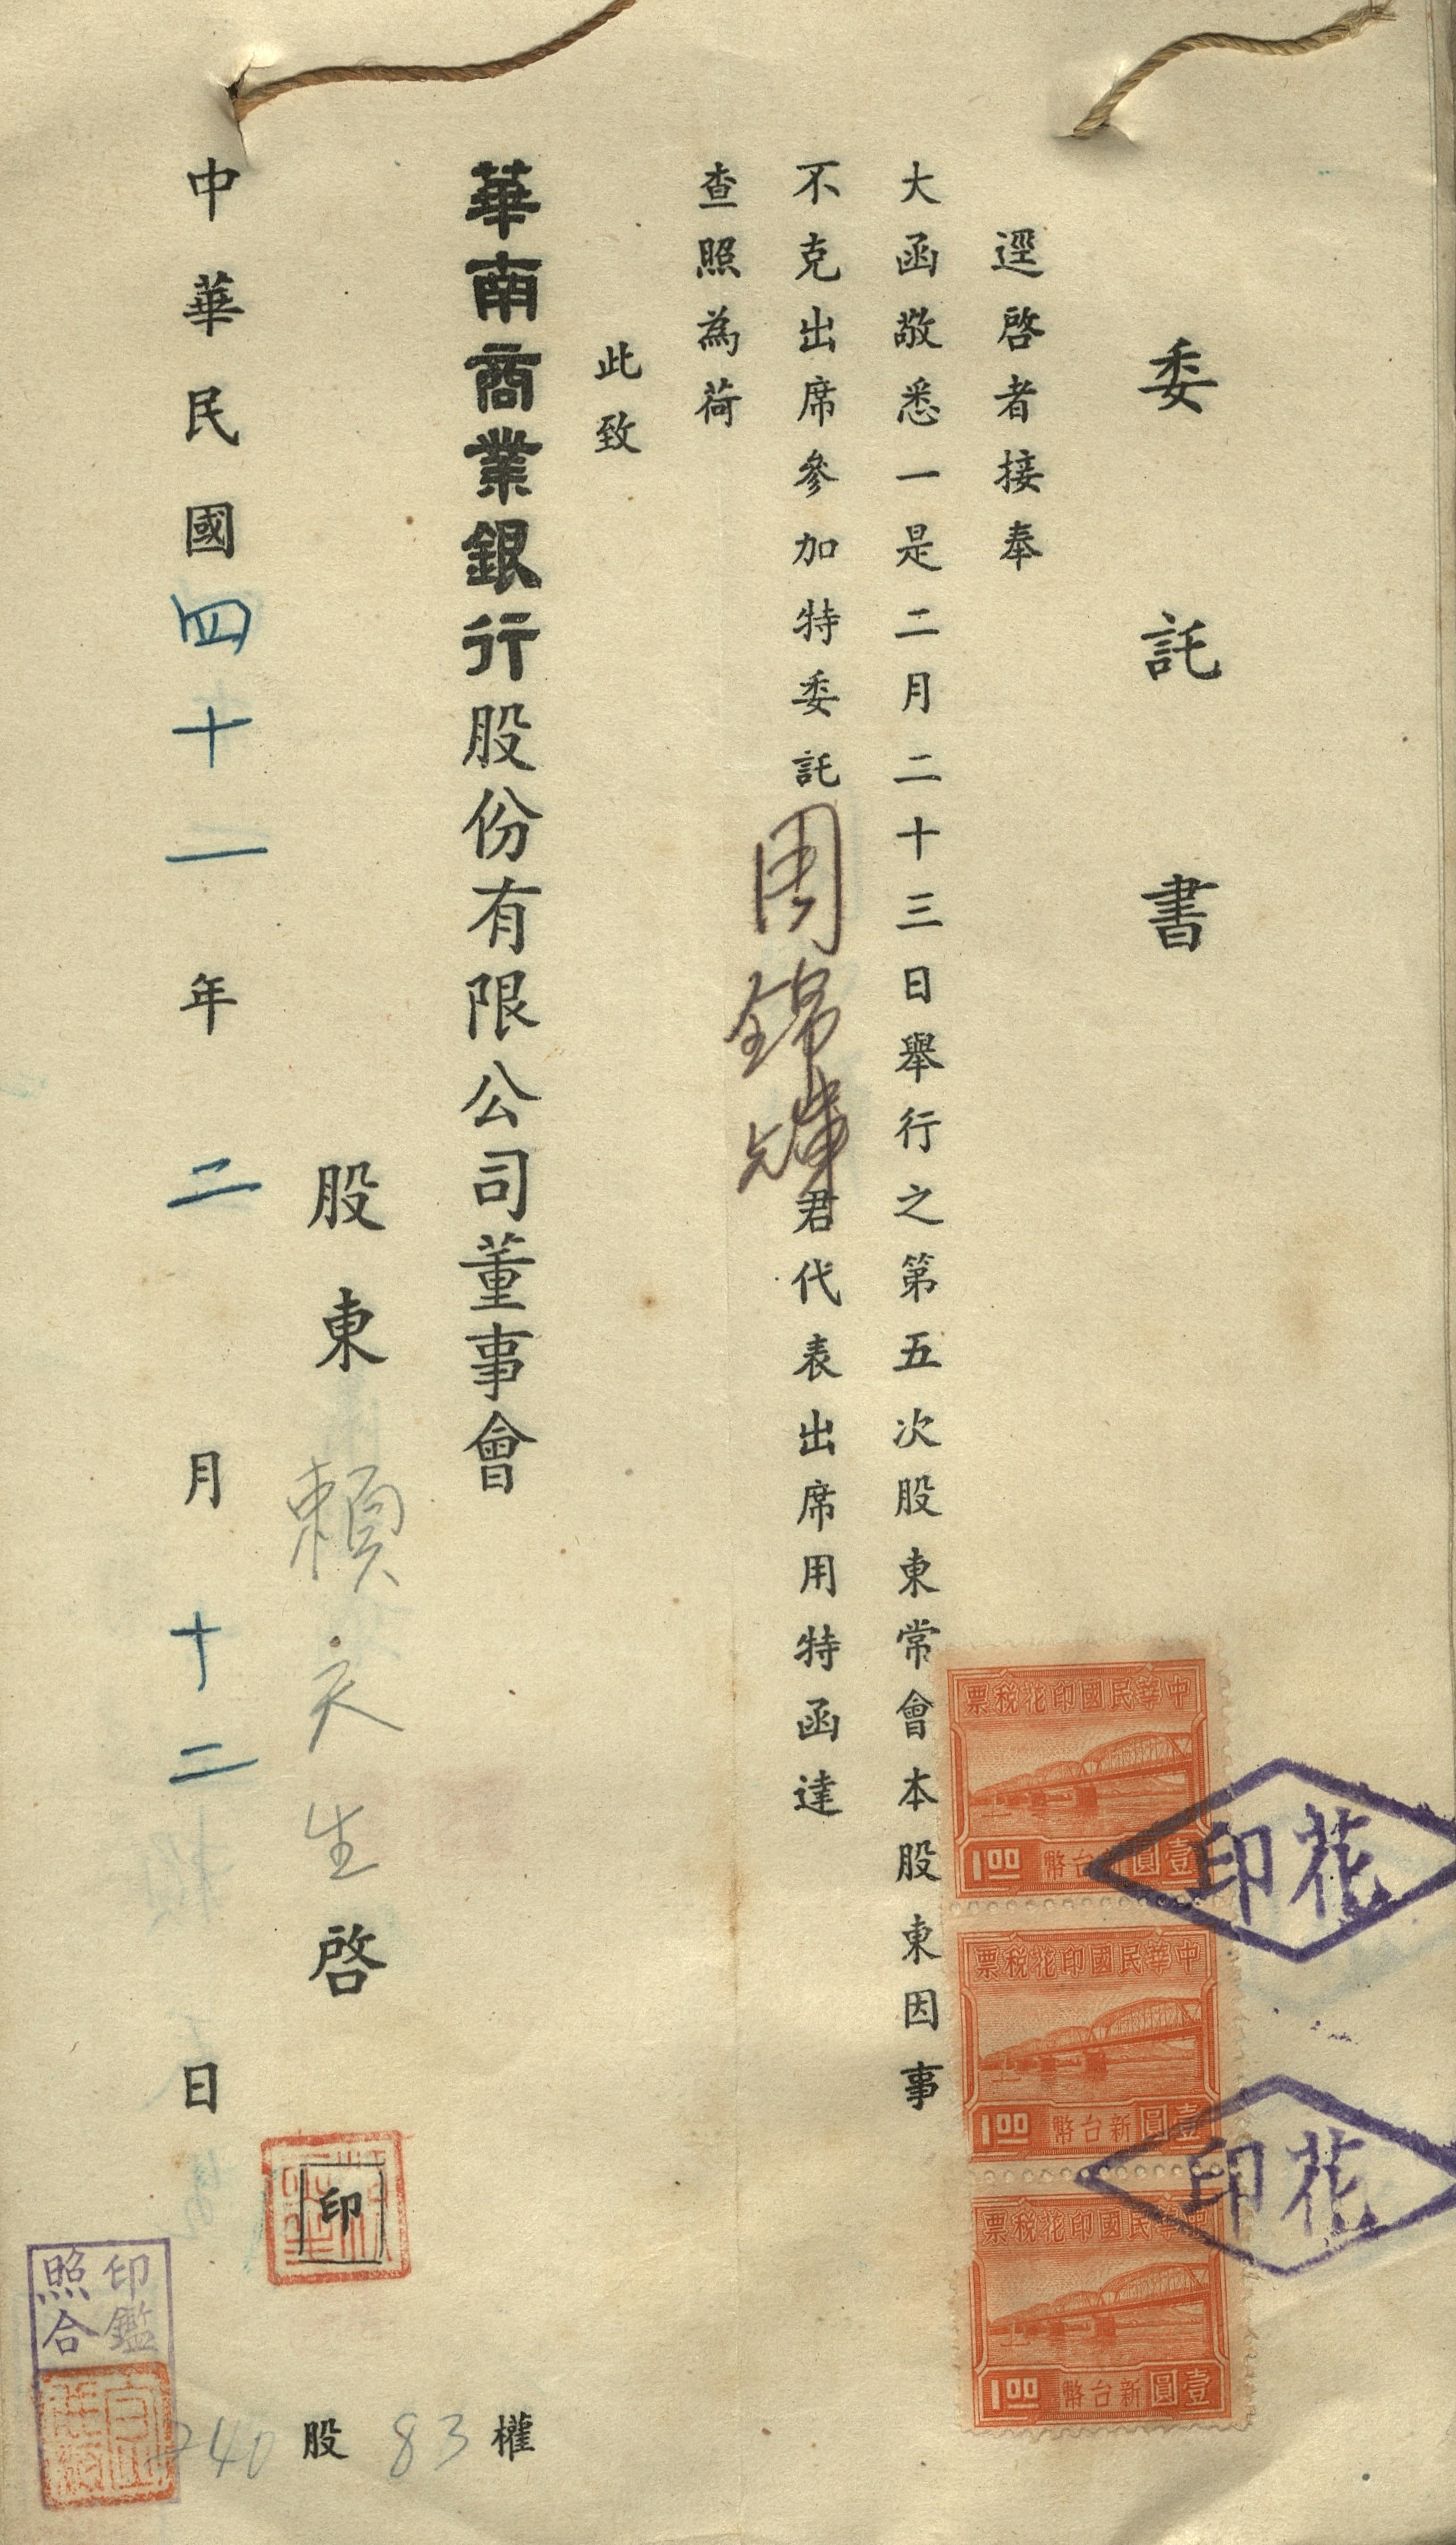 委託書
逕啓者接奉
大函敬悉一是二月二十三日舉行之第五次股東常會本股東因事
不克出席參加特委託周錦輝君代表出席用特函達
查照為荷
此致
華南商業銀行股份有限公司董事會
股東賴天生啓
印
中華民國四十二年二月十二日
740股 83權
印鑑
照合
中華民國印花稅票
新台幣壹圓
1.00
中華民國印花稅票
新台幣壹圓
1.00
中華民國印花稅票
新台幣壹圓
1.00
花印
花印